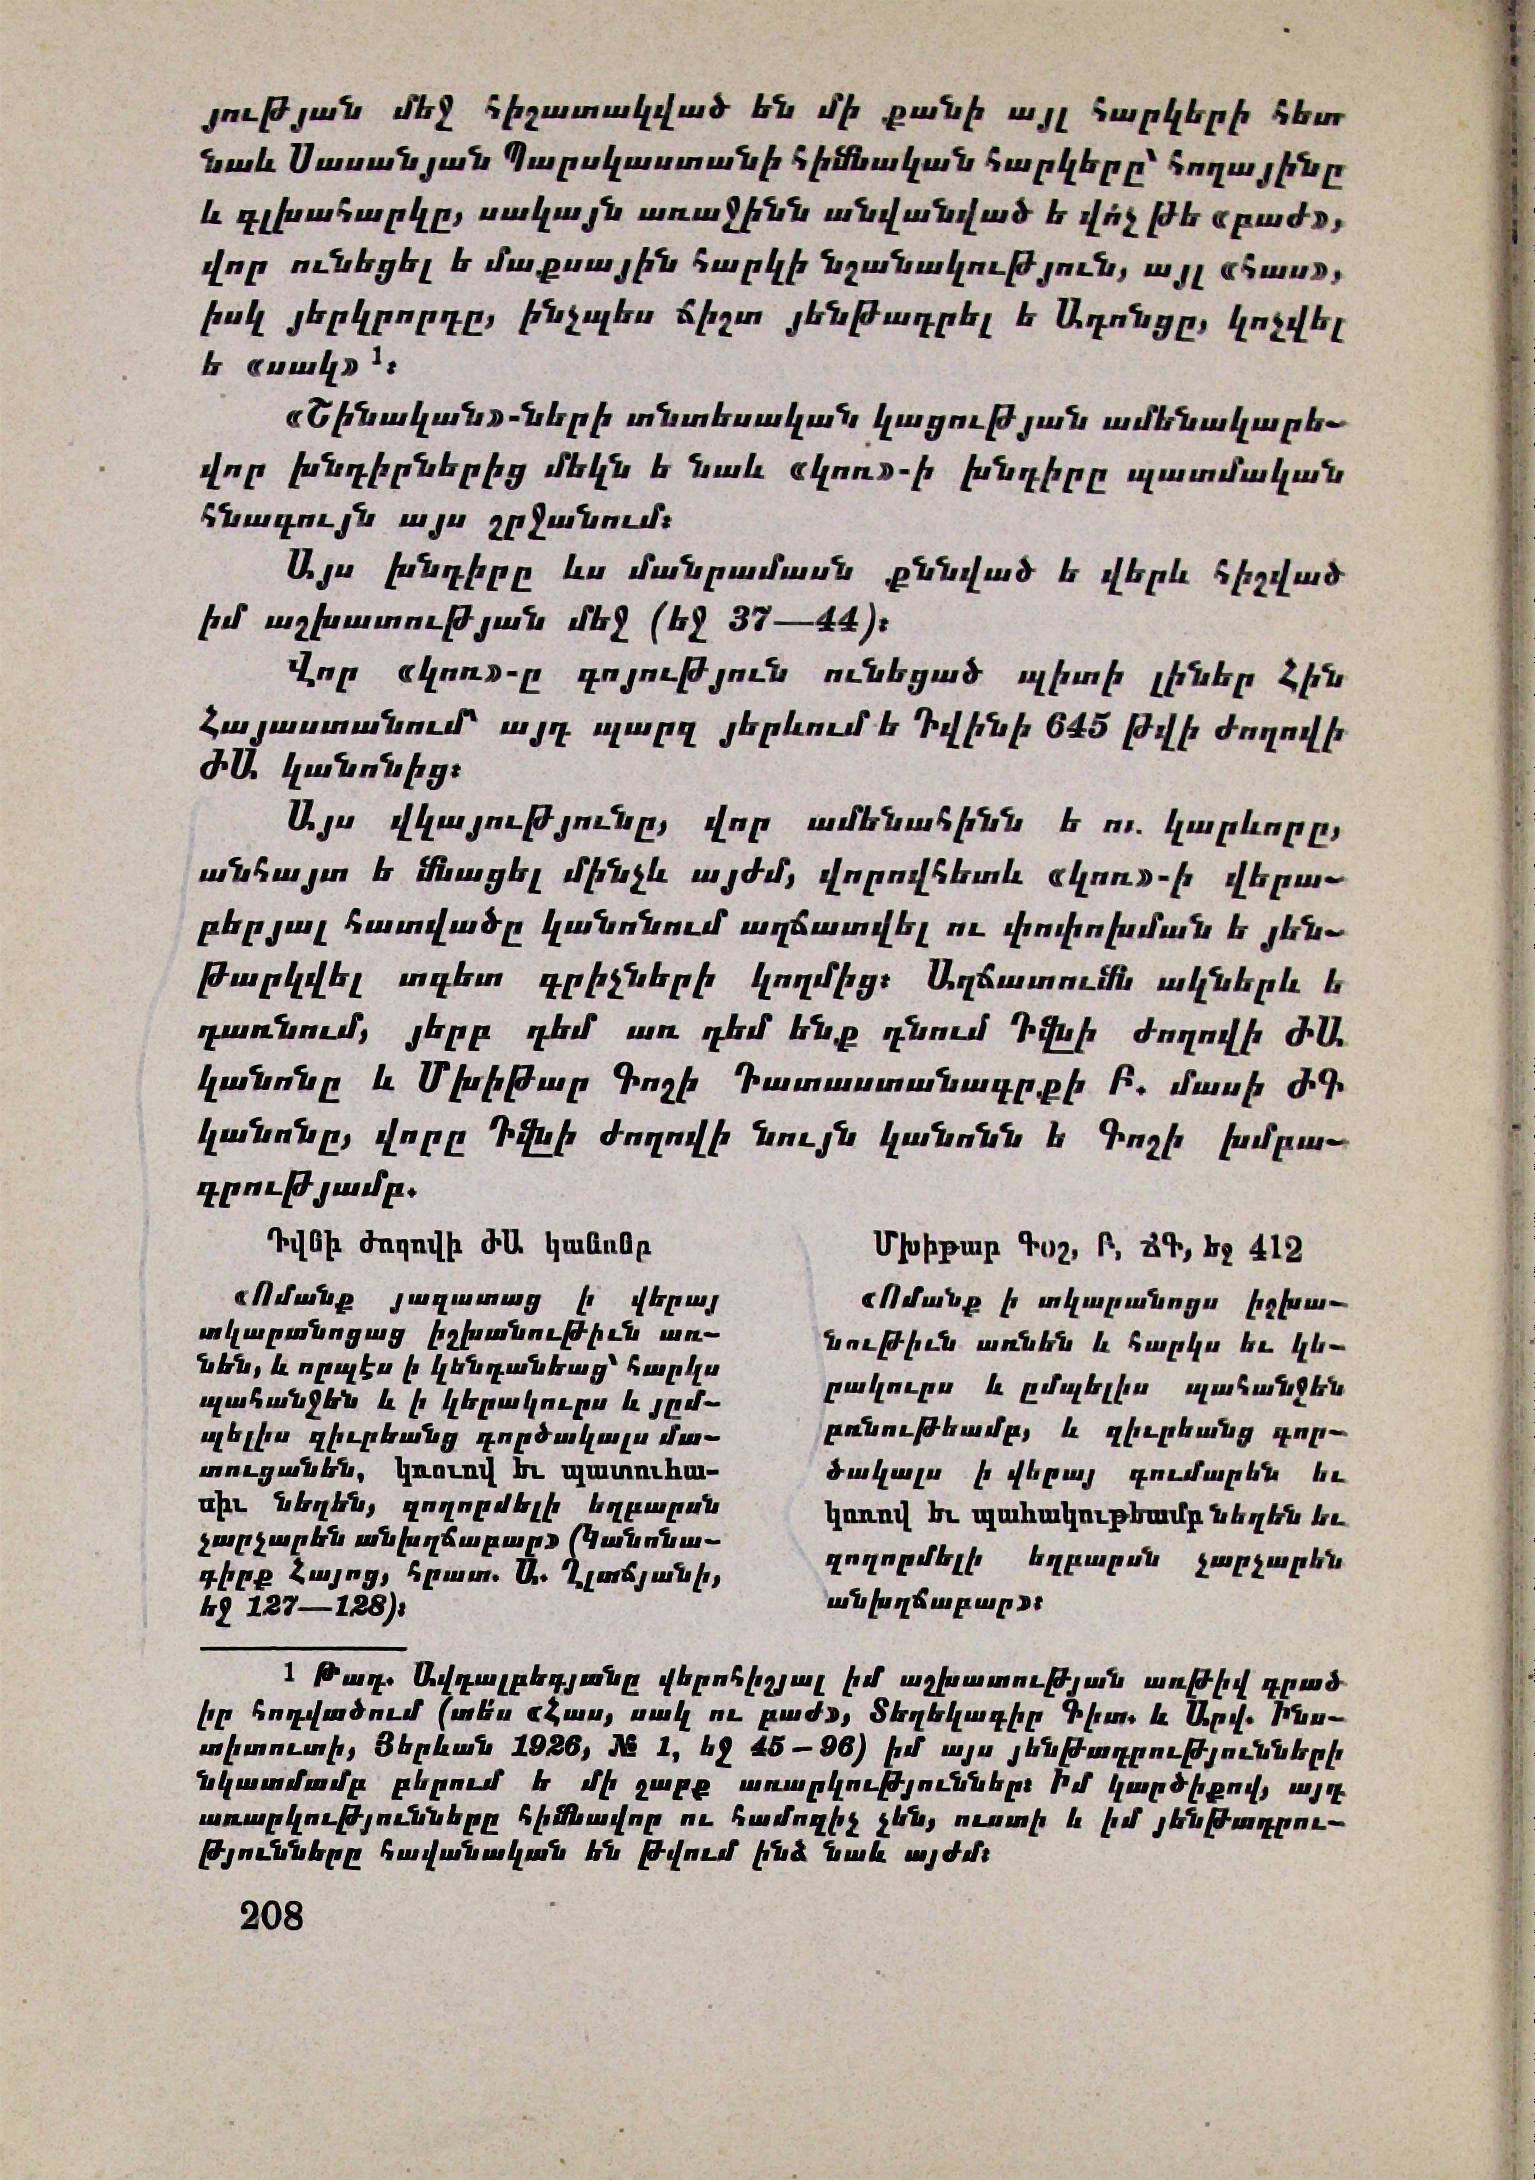 յության մեջ հիշատակված են մի քանի այլ հարկերի հետ
նաև Սասանյան Պարսկաստանի հիմնական հարկերը՝ հողայինը
և գլխահարկը, սակայն առաջինն անվանված ե վո՛չ թե «բաժ»,
վոր ունեցել ե մաքսային հարկի նշանակություն, այլ «հաս»,
իսկ յերկրորդը, ինչպես ճիշտ յենթադրել ե Ադոնցը, կոչվել
ե «սակ» 1։
«Շինական»-ների տնտեսական կացության ամենակարե-
վոր խնդիրներից մեկն ե նաև «կոռ»-ի խնդիրը պատմական
հնագույն այս շրջանում։
Այս խնդիրը ևս մանրամասն քննված ե վերև հիշված
իմ աշխատության մեջ (եջ 37—44)։
Վոր «կոռ»-ը գոյություն ունեցած պիտի լիներ Հին
Հայաստանում՝ այդ պարզ յերևում ե Դվինի 645 թվի ժողովի
ԺԱ կանոնից։
Այս վկայությունը, վոր ամենահինն ե ու կարևորը,
անհայտ ե մնացել մինչև այժմ, վորովհետև «կոռ»-ի վերա-
բերյալ հատվածը կանոնում աղճատվել ու փոփոխման ե յեն-
թարկվել տգետ գրիչների կողմից։ Աղճատումն ակներև ե
դառնում, յերբ դեմ առ դեմ ենք դնում Դվնի ժողովի ԺԱ
կանոնը և Մխիթար Գոշի Դատաստանագրքի Բ. մասի ԺԳ
կանոնը, վորը Դվնի ժողովի նույն կանոնն ե Գոշի խմբա-
գրությամբ.
Դվնի ժողովի ԺԱ կանոնը
«Ոմանք յազատաց ի վերայ
տկարանոցաց իշխանութիւն առ-
նեն, և որպէս ի կենդանեաց՝ հարկս
պահանջեն և ի կերակուրս և յըմ-
պելիս զիւրեանց գործակալս մա-
տուցանեն, կռուով եւ պատուհա-
սիւ նեղեն, զողորմելի եղբարսն
չարչարեն անխղճաբար» (Կանոնա-
գիրք Հայոց, հրատ. Ա. Ղլտճյանի,
եջ 127—128)։
Մխիթար Գօշ, Բ, ՃԳ, եջ 412
«Ոմանք ի տկարանոցս իշխա-
նութիւն առնեն և հարկս եւ կե-
րակուրս և ըմպելիս պահանջեն
բռնութեամբ, և զիւրեանց գոր-
ծակալս ի վերայ գումարեն եւ
կոռով եւ պահակութեամբ նեղեն եւ
զողորմելի եղբարսն չարչարեն
անխղճաբար»։
1 Թադ. Ավդալբեգյանը վերոհիշյալ իմ աշխատության առթիվ գրած
իր հոդվածում (տե՛ս «Հաս, սակ ու բաժ», Տեղեկագիր Գիտ. և Արվ. Ինս-
տիտուտի, Յերևան 1926, № 1, եջ 45 – 96) իմ այս յենթադրությունների
նկատմամբ բերում ե մի շարք առարկություններ։ Իմ կարծիքով, այդ
առարկությունները հիմնավոր ու համոզիչ չեն, ուստի և իմ յենթադրու-
թյունները հավանական են թվում ինձ նաև այժմ։
208